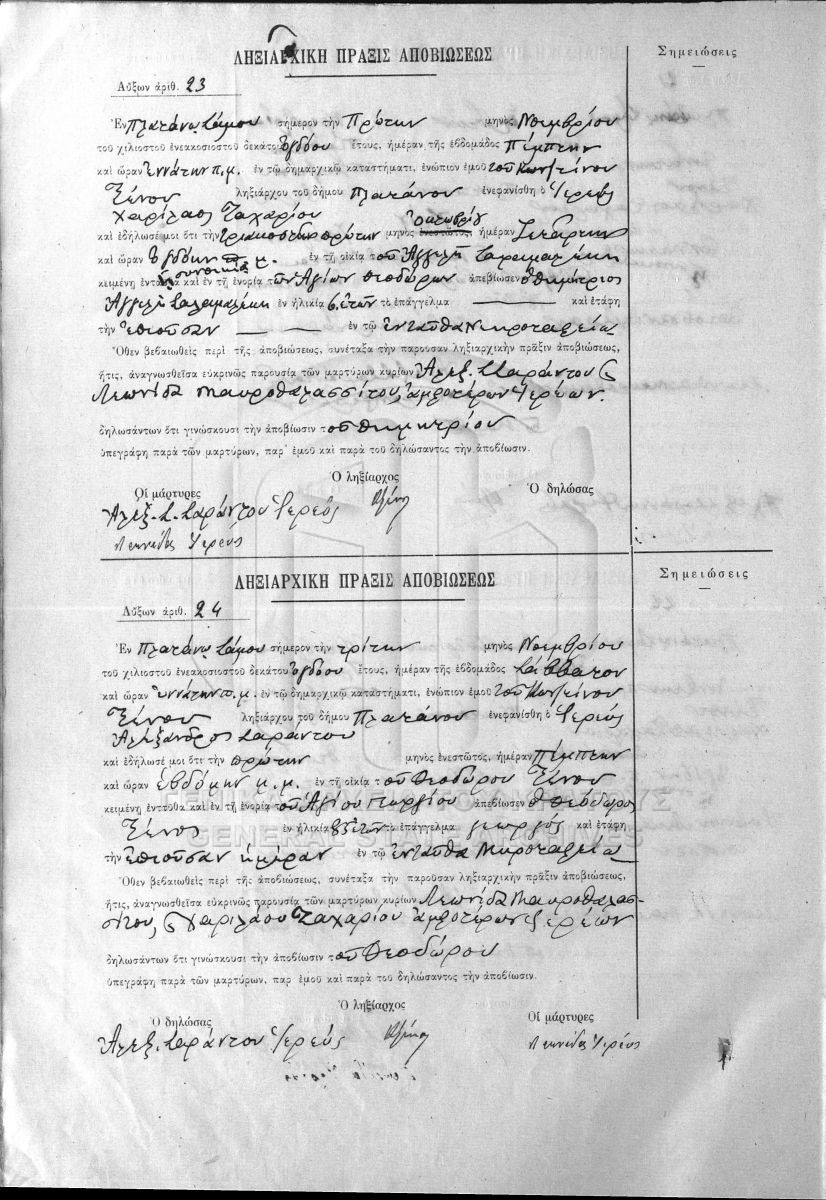 ΛΗΞΙΑΡΧΙΚΗ ΠΡΑΞΙΣ ΑΠΟΒΙΩΣΕΩΣ
Σημειώσεις
Αὔξων ἀριθ. 23
Ἐν Πλατάνῳ Σάμου σήμερον τὴν Πρώτην μηνὸς Νοεμβρίου
τοῦ χιλιοστοῦ ἐνεακοσιοστοῦ δεκάτου ὀγδόου ἔτους, ἡμέραν τῆς ἑβδομάδος Πέμπτην
καὶ ὥραν ἐννάτην π.μ. ἐν τῷ δημαρχικῷ καταστήματι, ἐνώπιον ἐμοῦ τοῦ Κωνσταντίνου
Ξένου ληξιάρχου τοῦ δήμου Πλατάνου ἐνεφανίσθη ὁ Ἱερεὺς
Χαρίλαος Ζαχαρίου
καὶ ἐδήλωσέ μοι ὅτι τὴν τριακοστὴν πρώτην μηνὸς ἐνεστῶτος, Ὀκτωβρίου ἡμέραν Τετάρτην
καὶ ὥραν ὀγδόην μ. ἐν τῇ οἰκίᾳ τοῦ Ἀγγελῆ
κειμένῃ ἐνταῦθα καὶ ἐν τῇ συνοικίᾳ ἐνορίᾳ τῶν Ἁγίων Θεοδώρων ἀπεβίωσεν ὁ Δημήτριος
Ἀγγελῆ ἐν ἡλικίᾳ 6 ἐτῶν τὸ ἐπάγγελμα — καὶ ἐτάφη
τὴν ἐπιοῦσαν — — ἐν τῷ ἐνταῦθα Νεκροταφείῳ
Ὅθεν βεβαιωθεὶς περὶ τῆς ἀποβιώσεως, συνέταξα τὴν παροῦσαν ληξιαρχικὴν πρᾶξιν ἀποβιώσεως,
ἥτις, ἀναγνωσθεῖσα εὐκρινῶς παρουσίᾳ τῶν μαρτύρων κυρίων Ἀλεξ. Σαράντου &
Λεωνίδα Μαυροθαλασσίτου, ἀμφοτέρων ἱερέων.
δηλωσάντων ὅτι γινώσκουσι τὴν ἀποβίωσιν τοῦ Δημητρίου
ὑπεγράφη παρὰ τῶν μαρτύρων, παρ' ἐμοῦ καὶ παρὰ τοῦ δηλώσαντος τὴν ἀποβίωσιν.
Ὁ ληξίαρχος
Οἱ μάρτυρες
Ὁ δηλώσας
Ἀλεξ. Σ. Σαράντου Ἱερεύς
Λεωνίδας Ἱερεύς
ΛΗΞΙΑΡΧΙΚΗ ΠΡΑΞΙΣ ΑΠΟΒΙΩΣΕΩΣ
Σημειώσεις
Αὔξων ἀριθ. 24
Ἐν Πλατάνῳ Σάμου σήμερον τὴν τρίτην μηνὸς Νοεμβρίου
τοῦ χιλιοστοῦ ἐνεακοσιοστοῦ δεκάτου ὀγδόου ἔτους, ἡμέραν τῆς ἑβδομάδος Σάββατον
καὶ ὥραν ἐννάτην π.μ. ἐν τῷ δημαρχικῷ καταστήματι, ἐνώπιον ἐμοῦ τοῦ Κωνσταντίνου
Ξένου ληξιάρχου τοῦ δήμου Πλατάνου ἐνεφανίσθη ὁ Ἱερεὺς
Ἀλέξανδρος Σαράντου
καὶ ἐδήλωσέ μοι ὅτι τὴν πρώτην μηνὸς ἐνεστῶτος, ἡμέραν Πέμπτην
καὶ ὥραν ἑβδόμην μ.μ. ἐν τῇ οἰκίᾳ τοῦ Θεοδώρου Ξένου
κειμένῃ ἐνταῦθα καὶ ἐν τῇ ἐνορίᾳ τοῦ Ἁγίου Γεωργίου ἀπεβίωσεν ὁ Θεόδωρος
Ξένος ἐν ἡλικίᾳ ἐτῶν τὸ ἐπάγγελμα γεωργὸς καὶ ἐτάφη
τὴν ἐπιοῦσαν ἡμέραν ἐν τῷ ἐνταῦθα Νεκροταφείῳ
Ὅθεν βεβαιωθεὶς περὶ τῆς ἀποβιώσεως, συνέταξα τὴν παροῦσαν ληξιαρχικὴν πρᾶξιν ἀποβιώσεως,
ἥτις, ἀναγνωσθεῖσα εὐκρινῶς παρουσίᾳ τῶν μαρτύρων κυρίων Λεωνίδα Μαυροθαλασ-
σίτου, & Χαριλάου Ζαχαρίου ἀμφοτέρων ἱερέων
δηλωσάντων ὅτι γινώσκουσι τὴν ἀποβίωσιν τοῦ Θεοδώρου
ὑπεγράφη παρὰ τῶν μαρτύρων, παρ ἐμοῦ καὶ παρὰ τοῦ δηλώσαντος τὴν ἀποβίωσιν.
Ὁ ληξίαρχος
Ὁ δηλώσας
Οἱ μάρτυρες
Ἀλεξ. Σαράντου Ἱερεύς
Λεωνίδας Ἱερεύς
ΓΕΝΙΚΑ ΑΡΧΕΙΑ ΤΟΥ ΚΡΑΤΟΥΣ
GENERAL STATE ARCHIVES